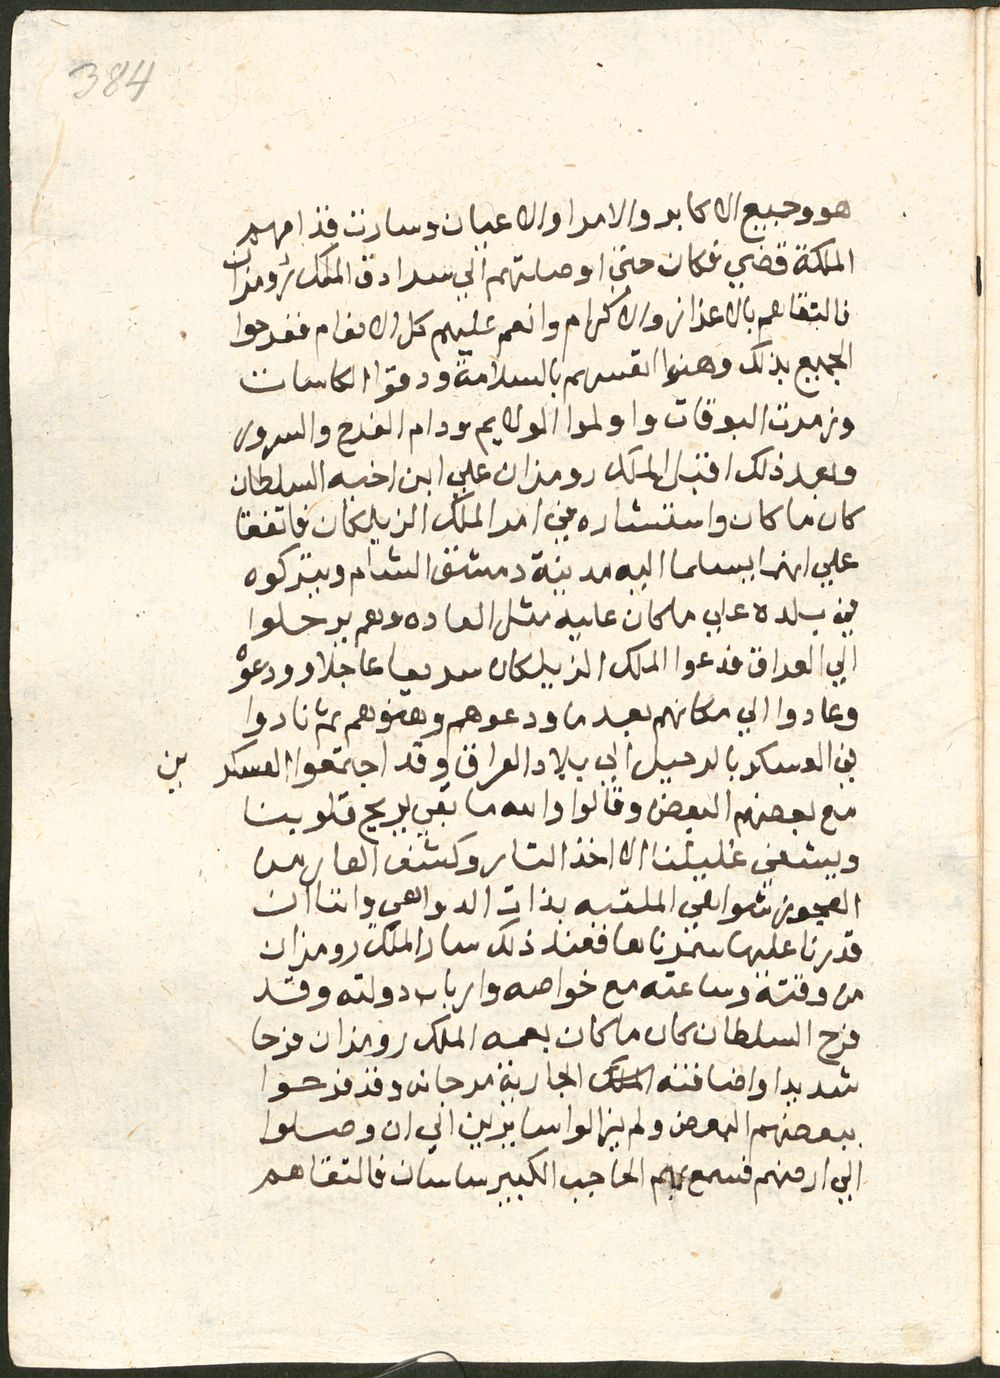 384
هو وجميع الاكابر والامرا والاعيان وسارت قدامهم
الملكة قضي فكان حتي اوصلتهم الي سرادق الملك رومزان
فالتقاهم بالاعزاز والاكرام وانعم عليهم كل الانعام ففرحوا
الجميع بذلك وهنوا القسهم بالسلامة ودقوا الكاسات
وزمرت البوقات واولموا الولايم ودام الفرح والسرور
وبعد ذلك اقبل الملك رومزان علي ابن اخته السلطان
كان ما كان واستشاره في امر الملك الزبلكان فاتفقا
علي انهما يسلما اليه مدينة دمشق الشام ويتركوه
في بلده علي ما كان عليه مثل العاده وهم يرحلوا
الي العراق فدعوا الملك الزبلكان سريعا عاجلا وودعوه
وعادوا الي مكانهم بعد ما ودعوهم وهنوهم ثم نادوا
في العسكر بالرحيل الي بلاد العراق وقد اجتمعوا العسكر بين
مع بعضهم البعض وقالوا والله ما بقي يريح قلوبنا
ويشفي غليلنا الا اخذ التار وكشف العار من
العجوز شواهي الملقبه بذات الدواهي واننا ان
قدرنا عليها سمرناها فعند ذلك سار الملك رومزان
من وقته وساعته مع خواصه وارباب دولته وقد
فرح السلطان كان ما كان بعمه الملك رومزان فرحا
شديدا واضافته الملك الجارية مرجانه وقد فرحوا
ببعضهم البعض ولم يزالوا سايرين الي ان وصلوا
الي ارضهم فسمع بهم الحاجب الكبير ساسان فالتقاهم